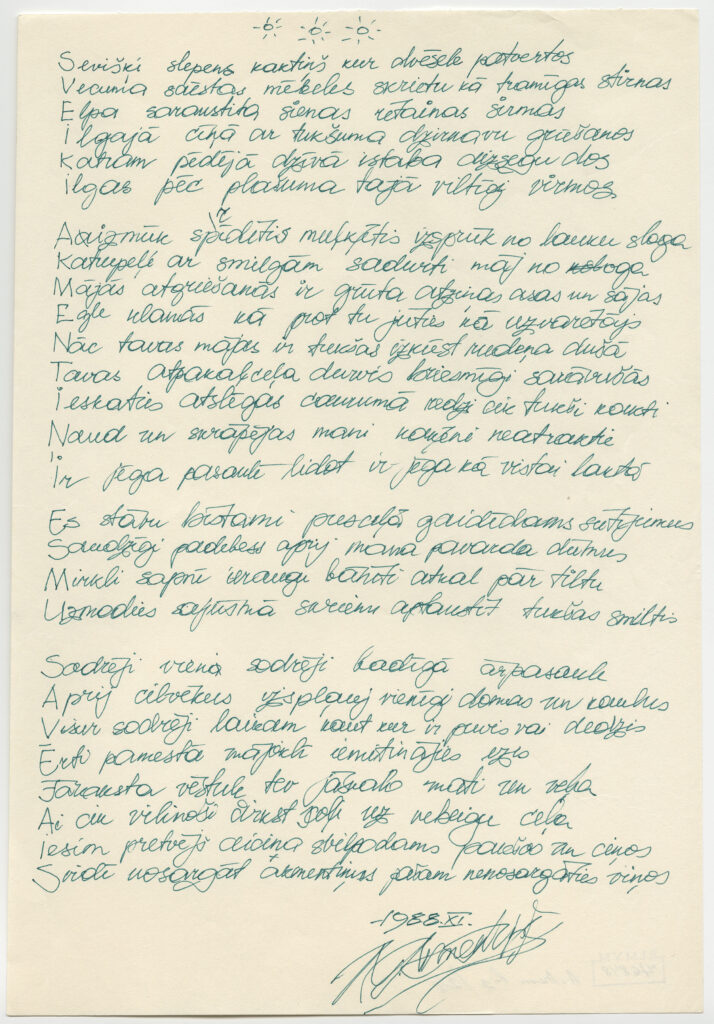 Sevišķi slepens kaktiņš kur dvēsele patvertos
Vecuma sdēstas mēbeles skrietu kā tramīgas stirnas
Elpa saraustīta sienas rētainas sirmas
Ilgajā cīņā ar tukšuma dzirnavu griešanos
Katram pēdējā dzīvā istaba aizsegu dos
Ilgas pēc plašuma tajā viltīgi virmos
Aizmūk spriedētis muļķītis izsprūk no lauku sloga
Katrupelē ar smilgām sadurti māj no loga
Mājās atgriešanās ir grūta atziņas asas un sājas
Egle klanās kā prot tu jūties kā uzvarētājs
Nāc tavas mājas ir tukšas izkiest rudeņa dušā
Tavas atpakaļceļa durvis briesmīgi sarāvušās
Ieskaties atslēgas caurumā redzi cik tukši kakti
Naud un skrāpējas mani kaķēni neatraktie
Ir jēga pasaulē lidot ir jēga kā vistai laktā
Es stāvu krītami presceļā gaidīdams sūtījumus
Saudzīgi padebess aprij mana pavarda dūmus
Mirkli sapnī ieraugu bāliņi atnāk pār tiltu
Uzmodies satūsmā skrienu aptaustīt tukšas smiltis
Sodrēji vieni sodrēji badīgā ārpasaule
Aprij cilvēkus izspļauj vienīgi domas un kaulus
Visur sodrēji laikam kaut kur ir purvs vai deglis
Ērti pamestā mājoklī iemitinājies ezis
Jāraksta vēstule tev jāsnauž māti un veļa
Ai cik vilinoši čirkst soļi uz nebeigu ceļa
Iesim pretvēji aicina svilpodams paušos un ciņos
Svīdī nosargāt akmentiņus pašam nenosargāties viņos
-1988.XI.